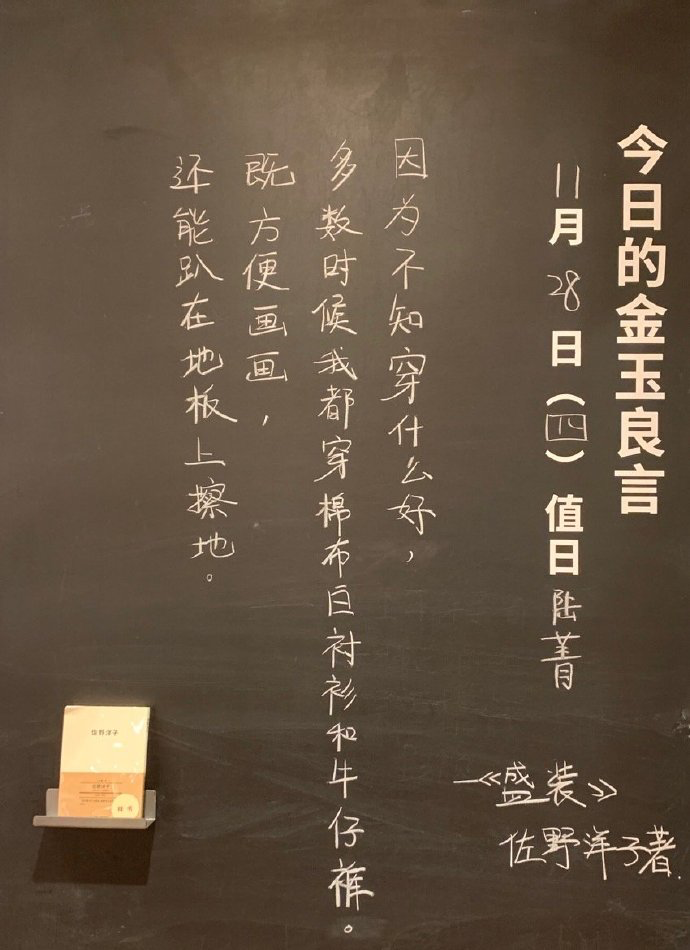 今日的金玉良言
11月28日(四)值日 陆菁
因为不知穿什么好,
多数时候我都穿棉布白衬衫和牛仔裤。
既方便画画,
还能趴在地板上擦地。
—《盛装》
佐野洋子著
佐野洋子